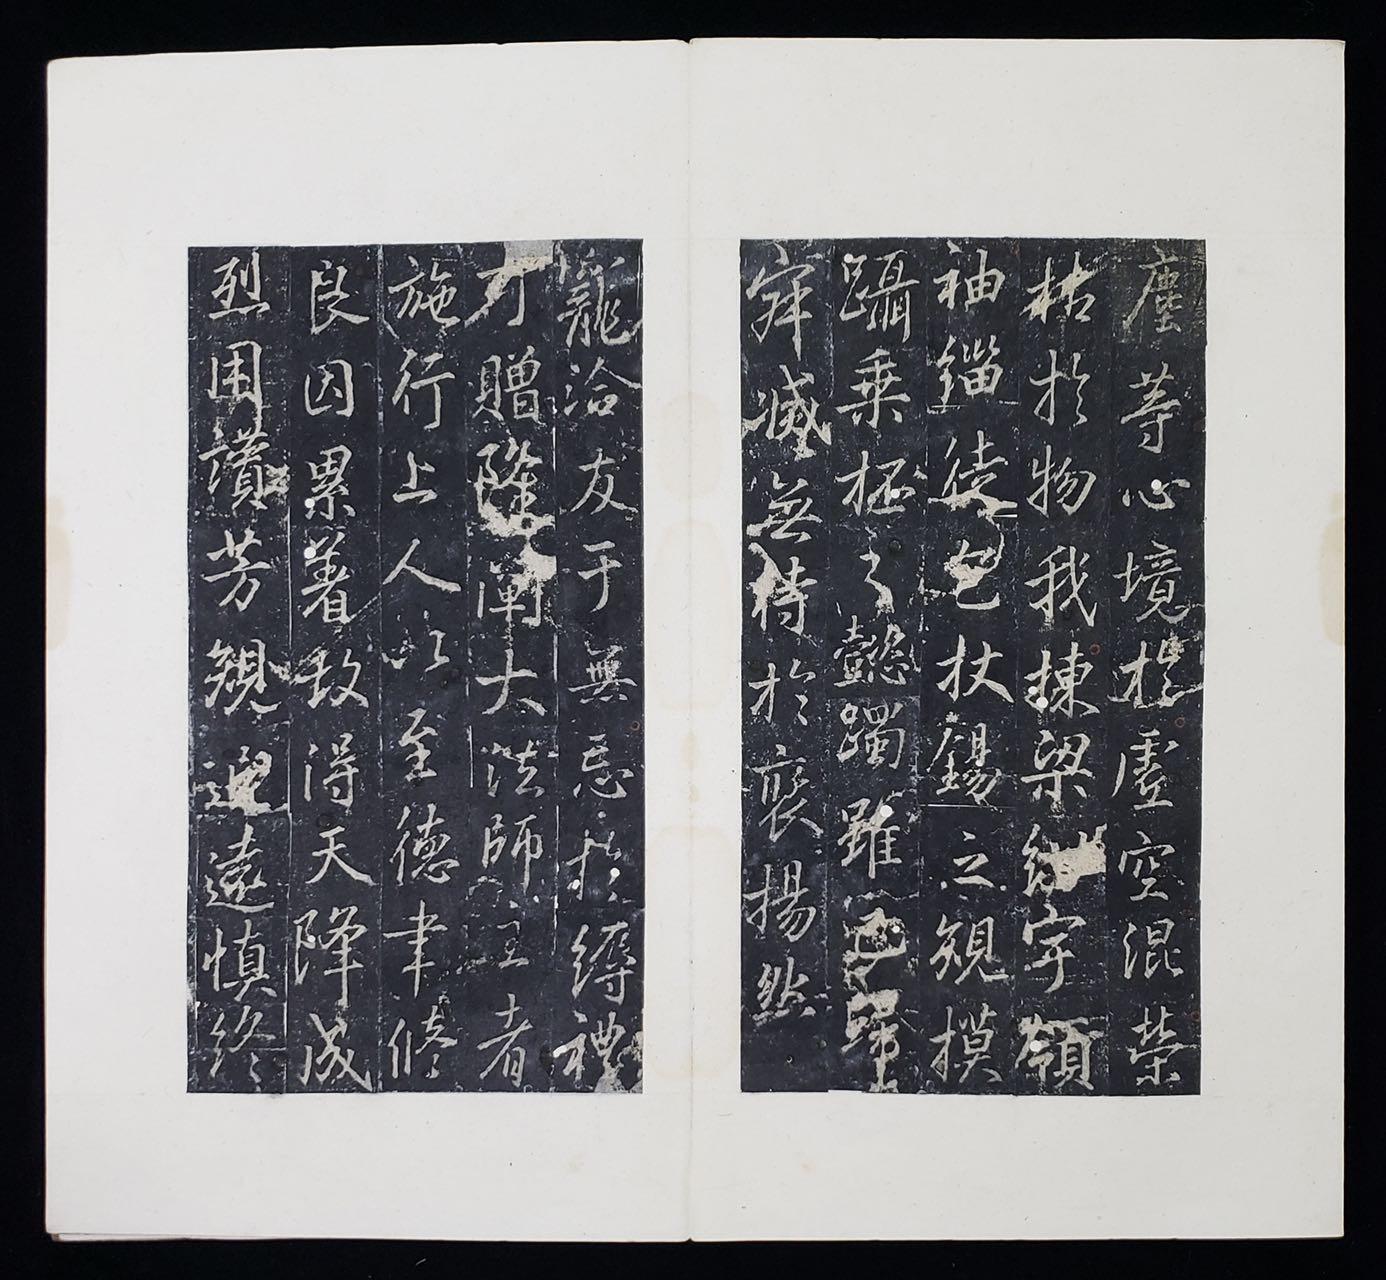 塵等心境於虛空混榮
枯於物我棟梁紺宇領
袖錙徒包杖錫之規模
躡乘杯之懿躅雖已歸
寂滅無待於褒揚然
寵洽友于無忘於縟禮
可贈隆闡大法師主者
施行上人以至德聿修
良因累著故得天降成
烈用讚芳規追遠慎終